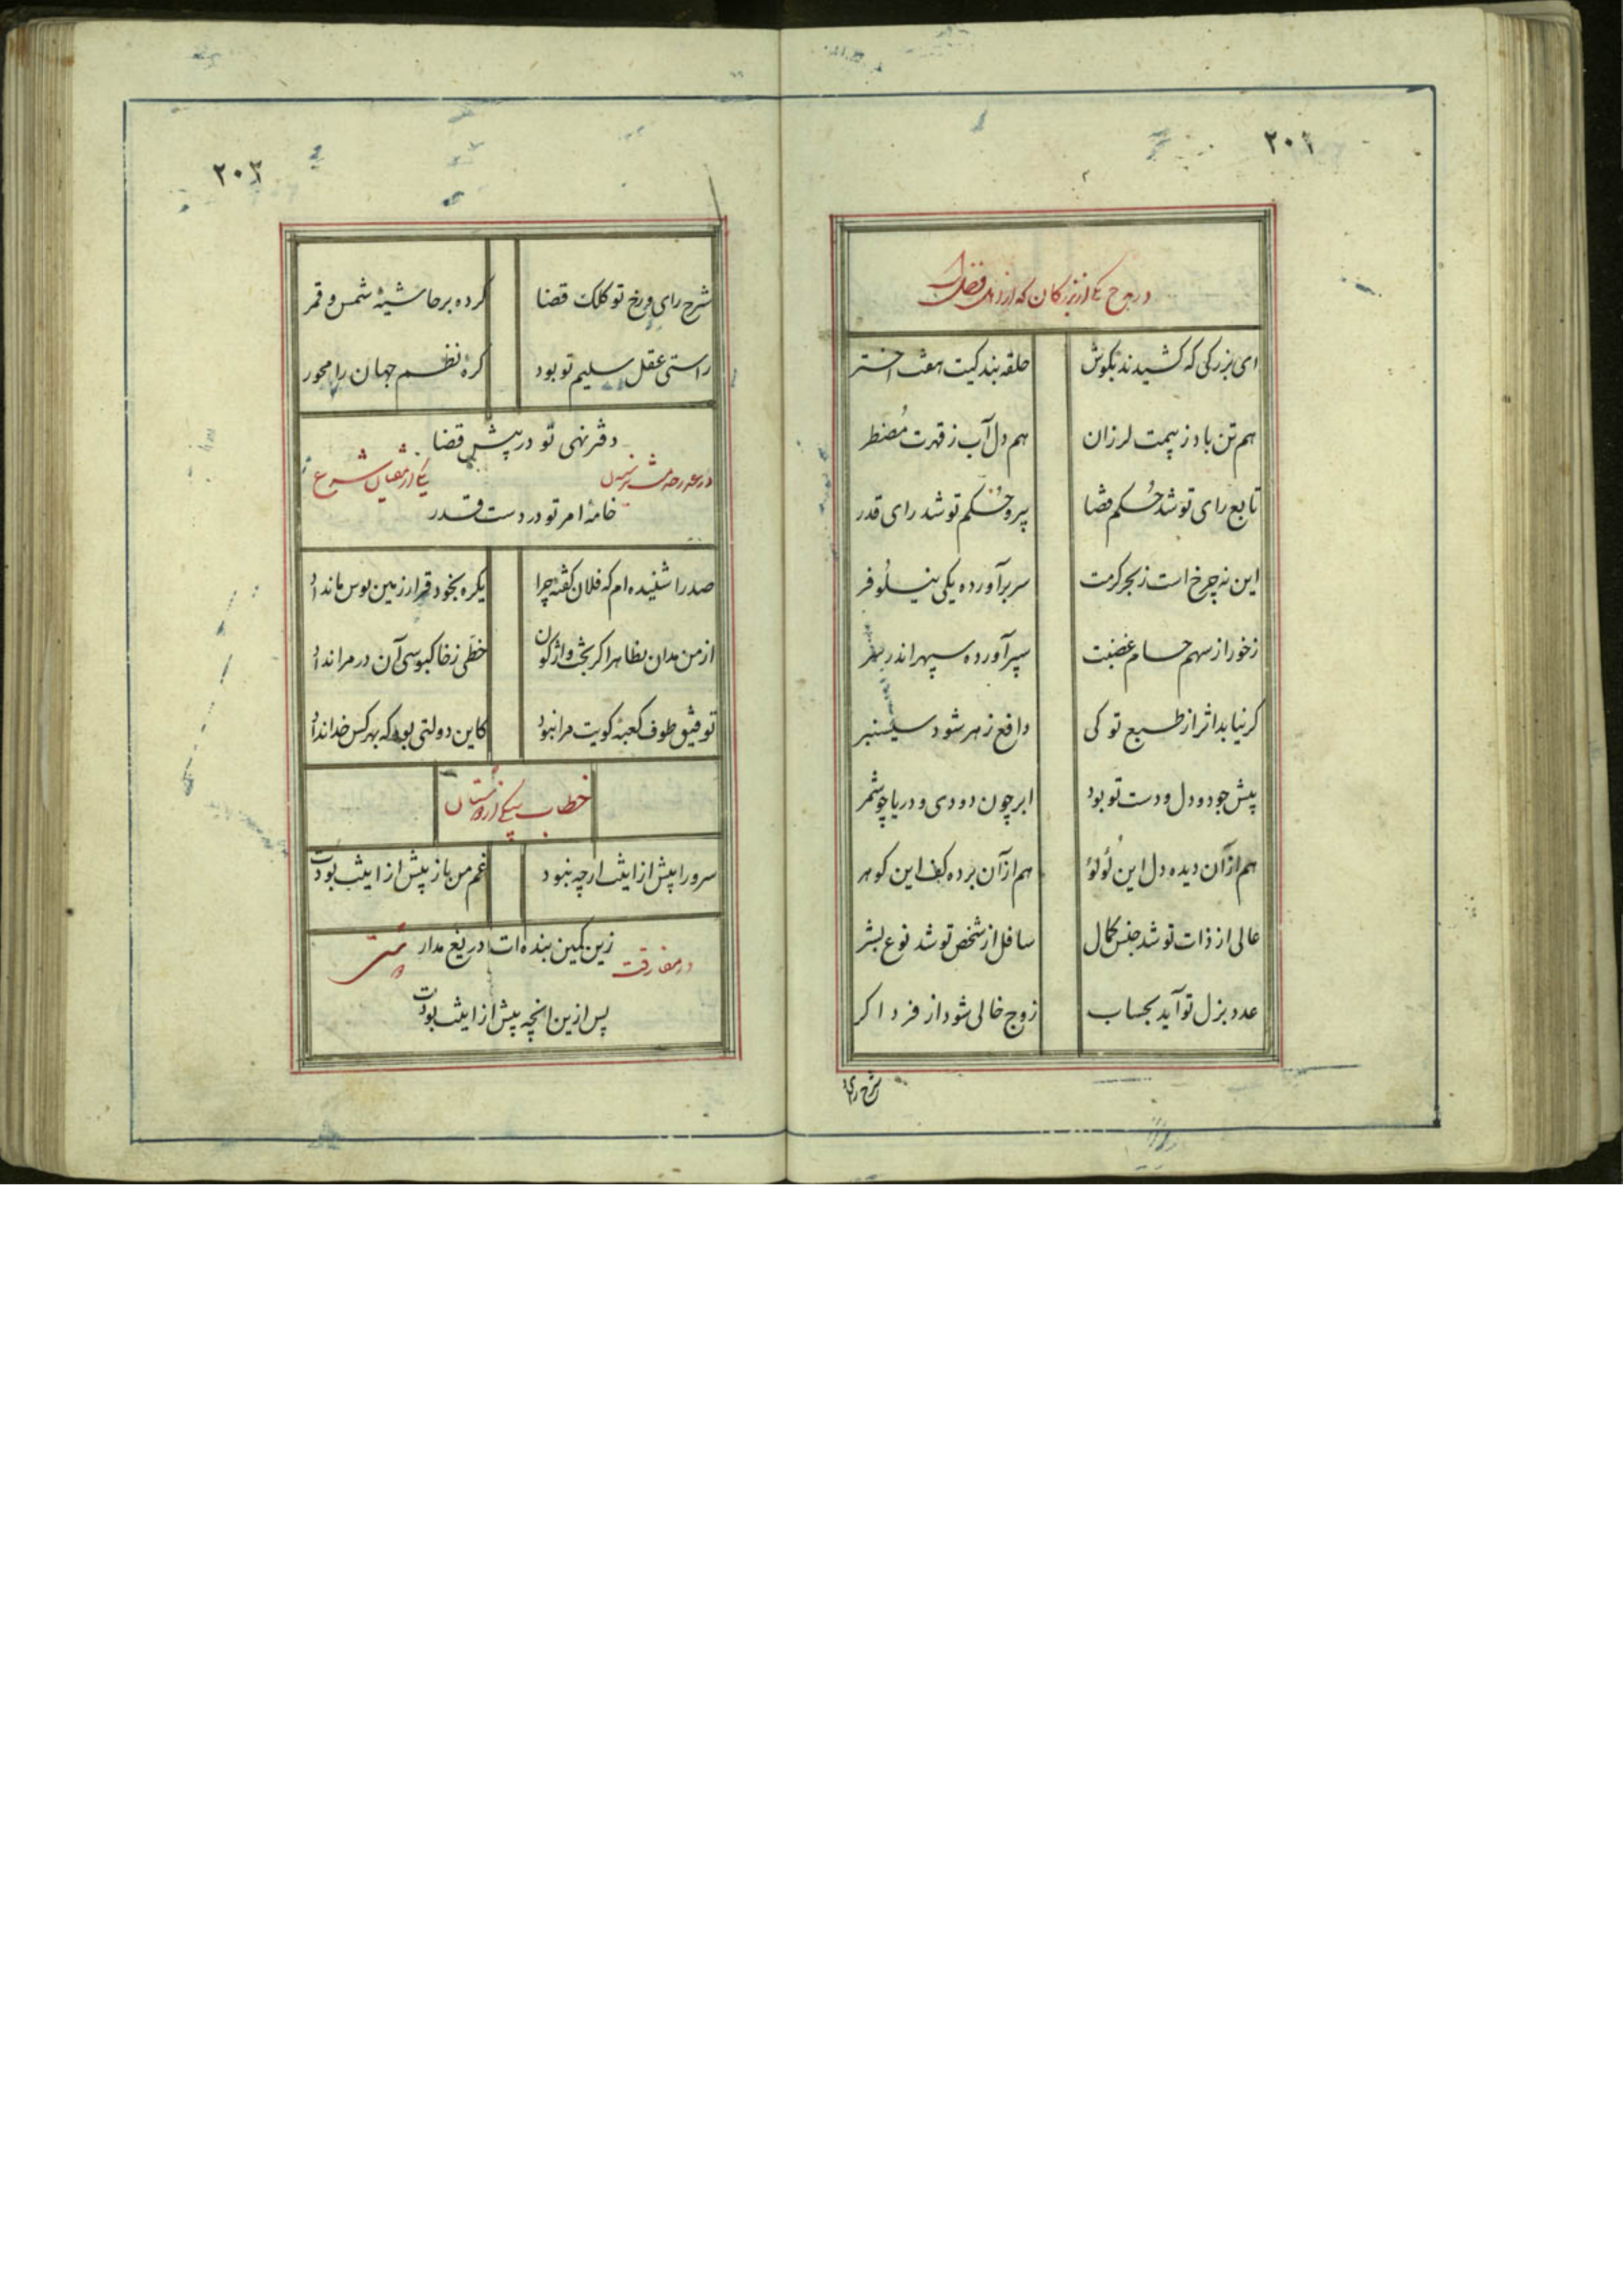 ۲۰۲
در مدح یکی از بزرکان که از اهل فضل است
ای بزرکی که کشیدند بکوش حلقه بندکیت هفت اختر
هم تن باد ز بیمت لرزان هم دل آب ز قهرت مُضطر
تابع رای تو شد حُکم قضا پیرو حُکم تو شد رای قدر
این نه چرخ است ز بحر کرمت سر برآورده یکی نیلُوفر
ز خور از سهم حسام غضبت سپر آورده سپهر اندر
کر نیابد اثر از طبع تو کی دافع زهر شود سیسنبر
پیش جود و دل و دست تو بود ابر چون دودی و دریا چو شمر
هم از آن دیده دل این لُؤلؤ هم از آن برده کف این کوهر
عالی از ذات تو شد جنس کمال سافل از شخص تو شد نوع بشر
عدد بزل تو آید بحساب زوج خالی شود از فرد اکر
شرح رای
۲۰۳
شرح رای و رخ تو کلک قضا کرده بر حاشیهٔ شمس و قمر
راستی عقل سلیم تو بود کره نظم جهان را محور
دفتر نهی تو در پیش قضا
یکی از مفتیان شرع
خامهٔ امر تو در دست قدر
صدرا شنیده‌ام که فلان کفته چرا یکره بخود قرار زمین بوس ما نداد
از من مدان بظاهر اکر بخت واژکون خطی ز خاکبوسی آن در مرا نداد
توفیق طوف کعبهٔ کویت مرا نبود کاین دولتی بود که بهر کس خدا نداد
خطاب بیکی از دوستان
سرورا پیش از اینت ار چه نبود غم من باز پیش از اینت بودت
زین کمین بنده‌ات دریغ مدار
در مفارقت
پس از ین انچه پیش از اینت بودت